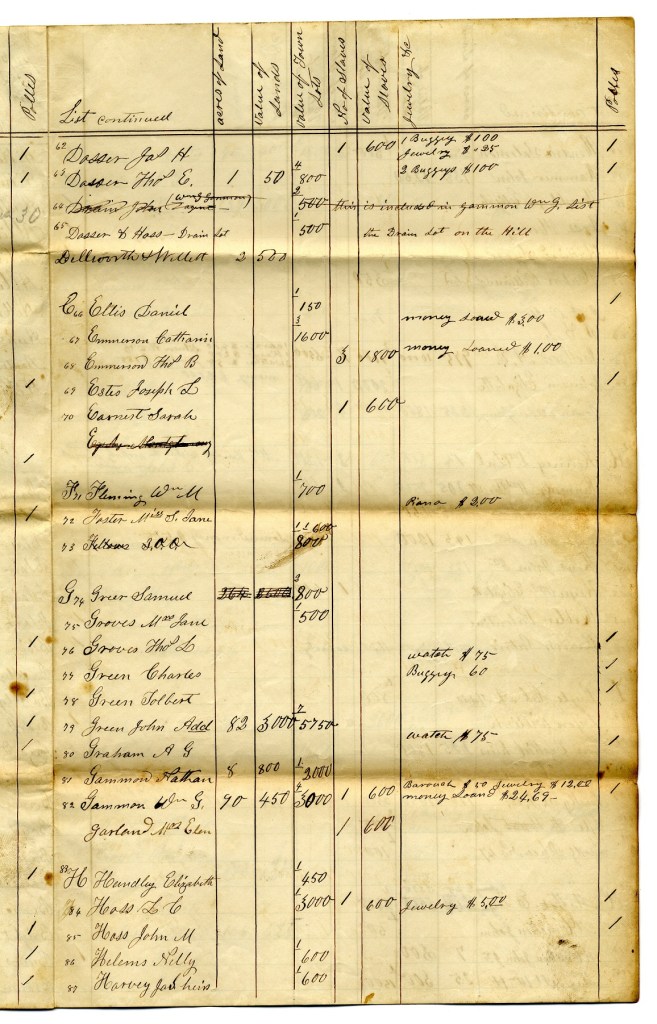 Polls
List continued
acres of Land
Value of Lands
Value of Town Lots
No of Slaves
Value of Slaves
Jewelry &c
Polls
1 62 Dosser Jas H. 1 600 1 Buggy $100 1
Jewelry $ 25
1 63 Dosser Thos E. 1 50 4 800 2 Buggys $100 1
30 64 Drain John (Wm G Gammon agent) 2 500 this is included in Gammon Wm G. List
65 Dosser & Hoss - Drain Lot 1 500 the Drain Lot on the Hill
Dillworth & Willett 2 500
1
E 66 Ellis Daniel 1 150 money Loaned $3,00
67 Emmerson Catharin 3 1600
68 Emmerson Thos B 3 1800 money Loaned $1,00
1 69 Estes Joseph L 1
70 Earnest Sarah 1 600
1
F 71 Fleming Wm M 1 700 Piano $2,00
1 72 Foster Miss S. Jane 1 1 600
73 800
G 74 Greer Samuel 364 3 800
75 Groves Mrs Jane 1 500
1 76 Groves Thos L watch $75 1
77 Green Charles Buggy 60 1
1 78 Green Tolbert 1
1 79 Green John Add 82 3000 7 5750
1 80 Graham A G watch $75 1
81 Gammon Nathan 8 800 1 2000
82 Gammon Wm G. 90 450 4 3000 1 600 Barouch $50 Jewelry $12,00 1
money Loand $24,69-
Garland Mrs Elen 1 600
1 83 H Handley Elizabeth 1 450
84 Hoss L C 1 3000 1 600 Jewelry $5,00 1
1 85 Hoss John M 1
1 86 Helems Nelly 1 600
1 87 Harvey Jas heirs 1 600